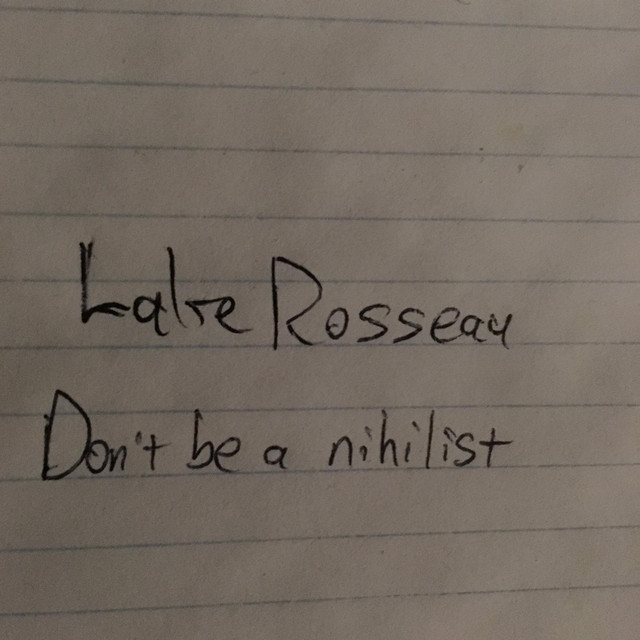 Lake Rosseau
Don't be a nihilist